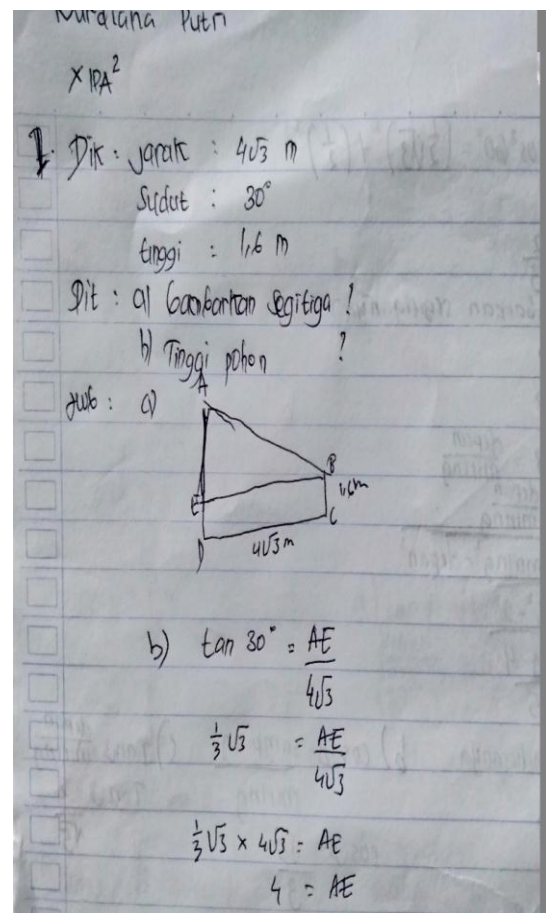 Putri
X IPA²
1. Dik : Jarak : 4√3 m
Sudut : 30°
tinggi : 1,6 m
Dit : a) Gambarkan segitiga !
b) Tinggi pohon ?
Jwb : a)
A
B
1,6m
E
C
D
4√3 m
b) tan 30° = AE / 4√3
1/3 √3 = AE / 4√3
1/3 √3 × 4√3 = AE
4 = AE